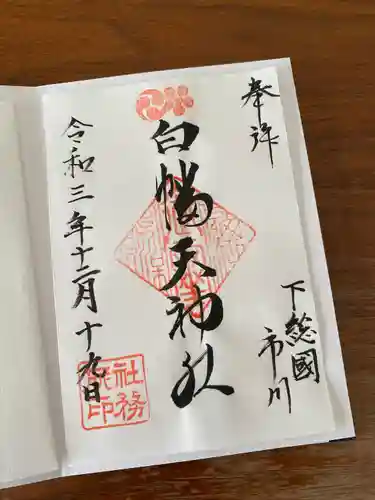 奉拝
下総國
市川
白幡天神社
令和三年十二月十九日
社務
之印